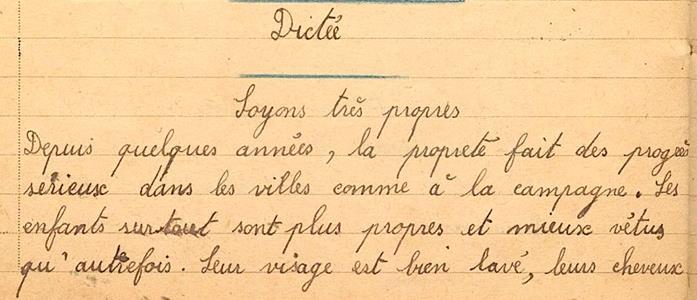 Dictée
Soyons très propres
Depuis quelques années, la propreté fait des progrès
sérieux dans les villes comme à la campagne. Les
enfants surtout sont plus propres et mieux vêtus
qu'autrefois. Leur visage est bien lavé, leurs cheveux